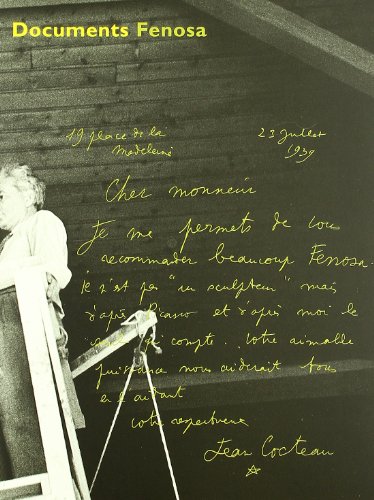 Documents Fenosa
19 place de la
Madeleine
23 Juillet
1939
Cher monsieur
Je me permets de vous
recommander beaucoup Fenosa.
ce n'est pas "un sculpteur" mais
d'après Picasso et d'après moi le
qui compte. Votre aimable
puissance nous aiderait tous
en l'aidant
votre respectueux
Jean Cocteau